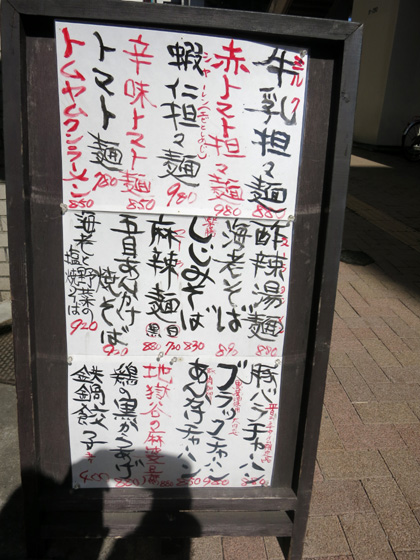 ミルク
牛乳担々麺 880
赤トマト担々麺 980
シャーレン
蝦仁担々麺 980
辛味トマト麺 850
トマト麺 780
トムヤムクンラーメン 850
酸辣湯麺 880
海老そば 890
しじみそば 830
麻辣麺 黒 880 白 920
五目あんかけ焼そば 920
海老と野菜の塩焼そば 920
豚バラチャーハン
ブラックチャーハン
あんかけチャーハン 850
地獄谷の麻婆豆腐
鶏の唐からあげ
鉄鍋餃子